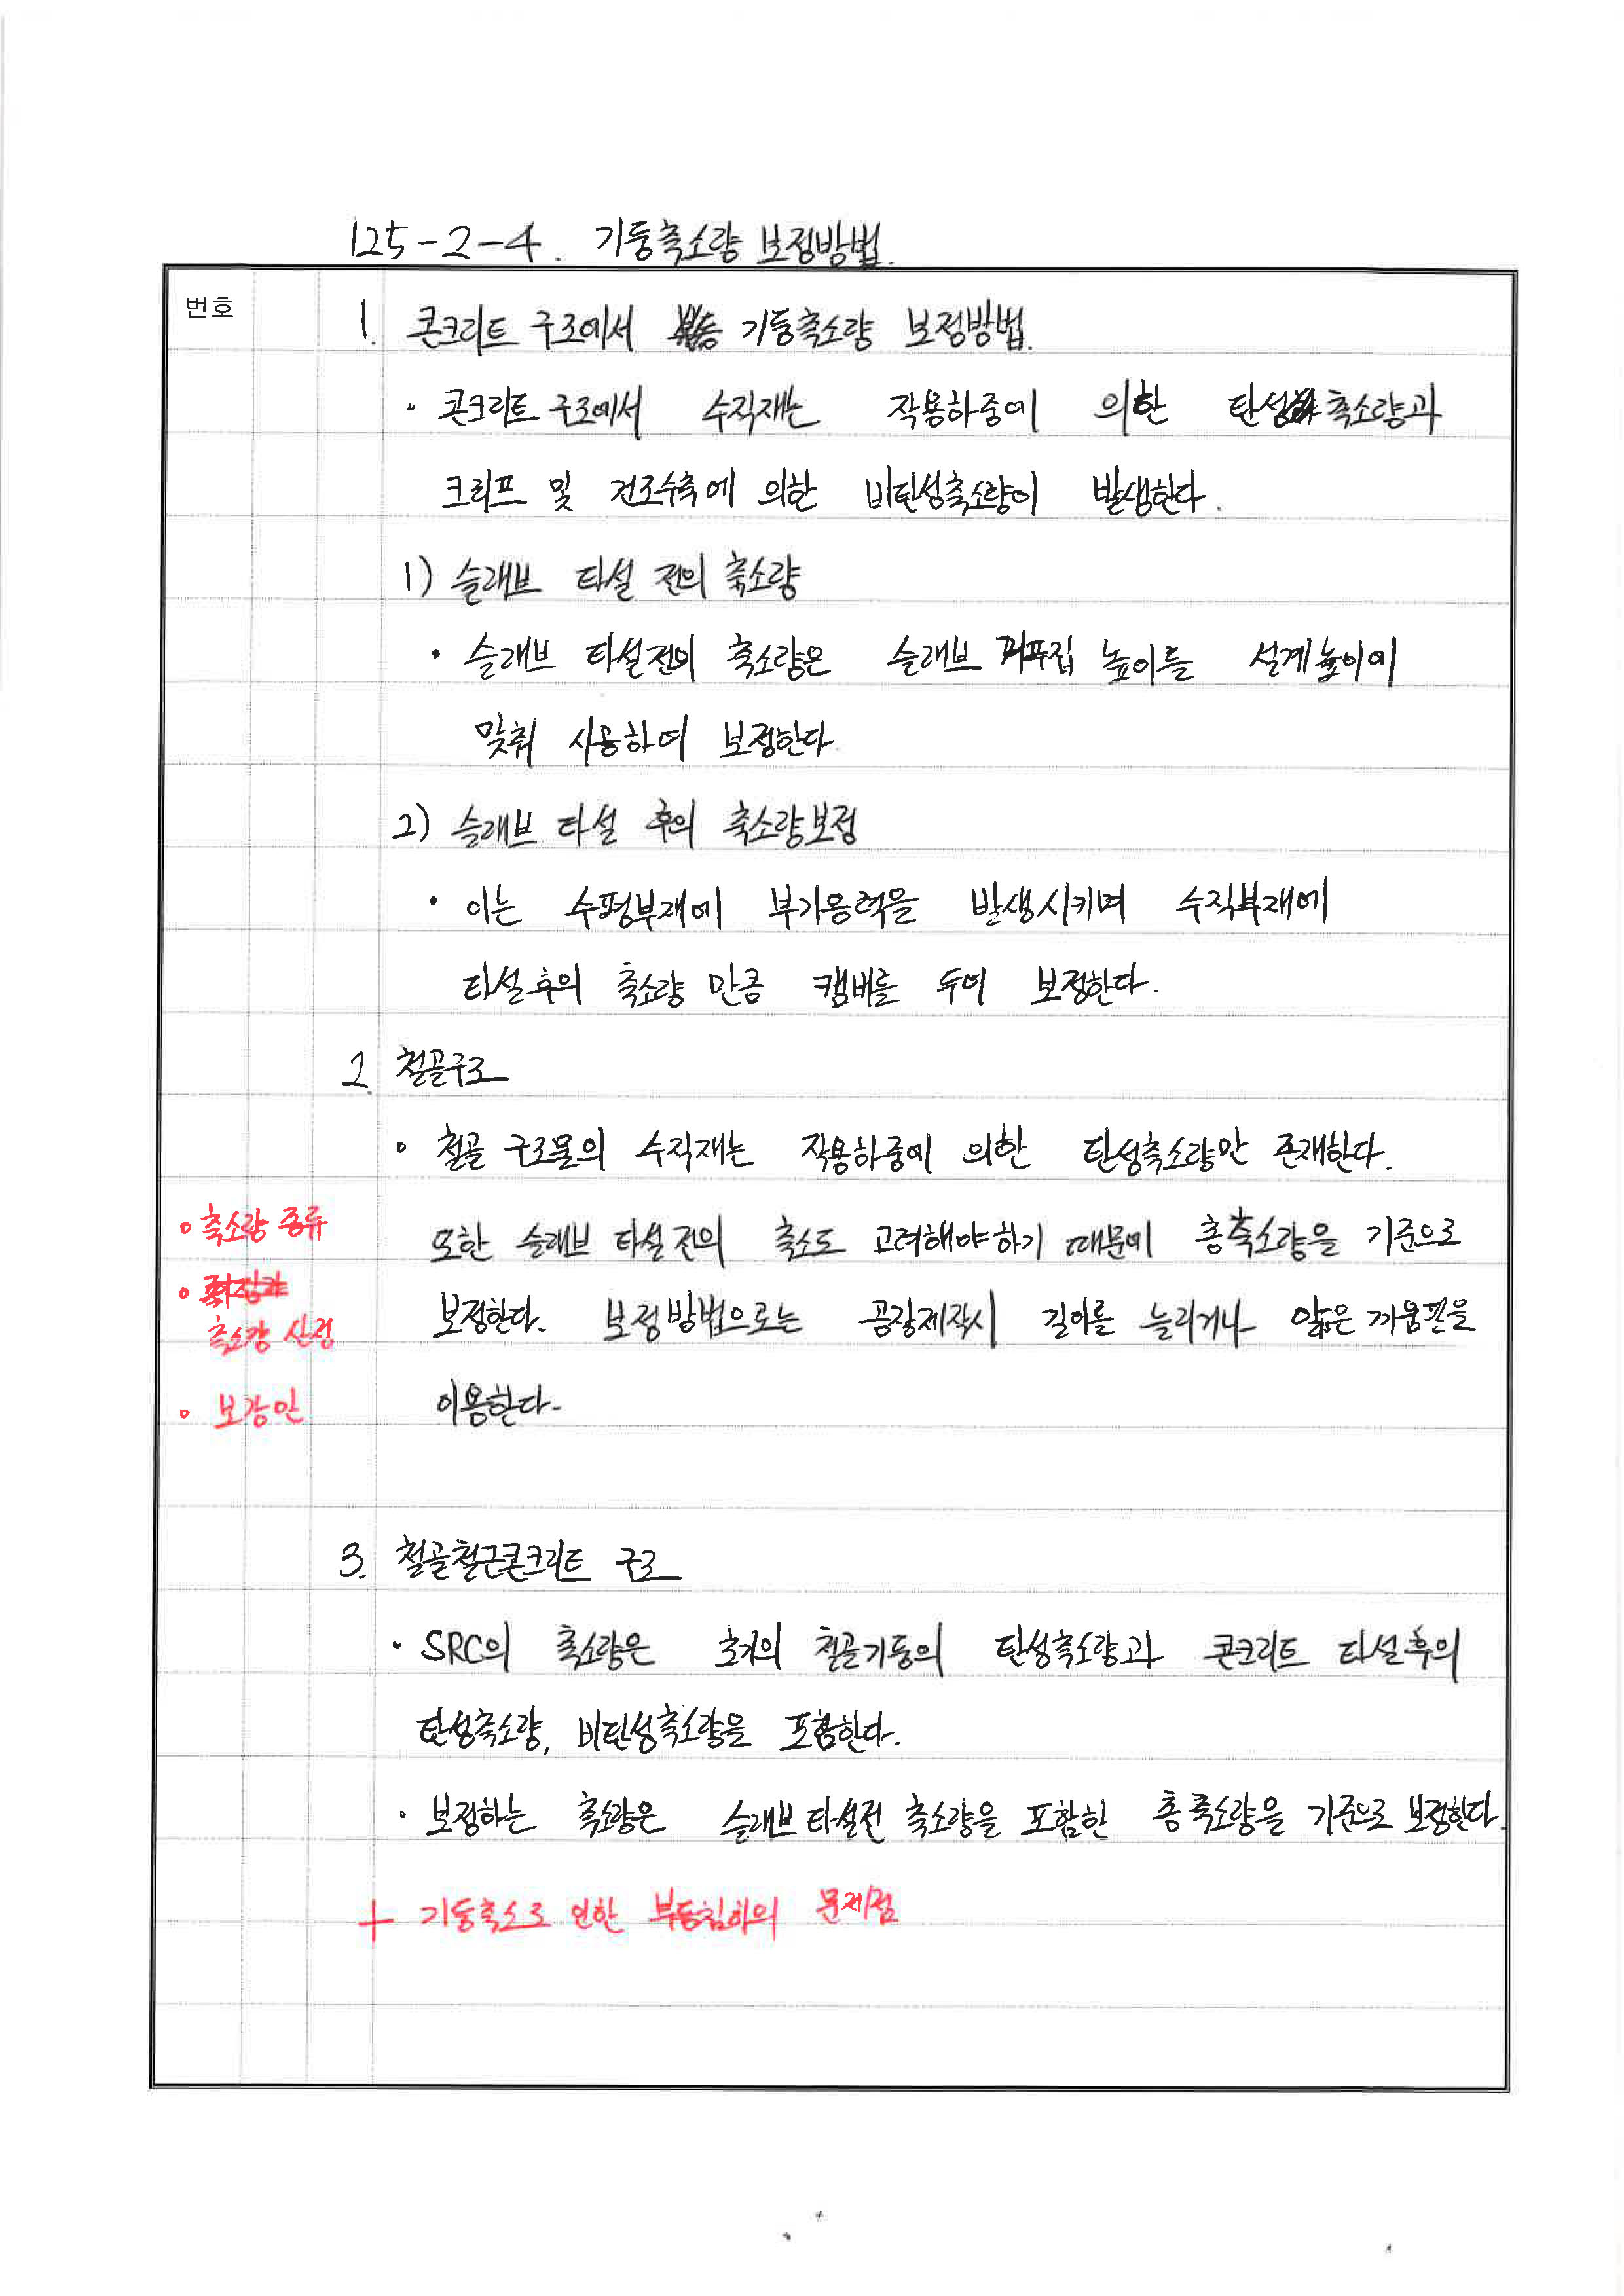 125-2-4. 기둥축소량 보정방법.
번호
1. 콘크리트 구조에서 기둥축소량 보정방법.
· 콘크리트 구조에서 수직재는 작용하중에 의한 탄성축소량과
크리프 및 건조수축에 의한 비탄성축소량이 발생한다.
1) 슬래브 타설 전의 축소량
· 슬래브 타설전의 축소량은 슬래브 거푸집 높이를 설계높이에
맞춰 시공하여 보정한다.
2) 슬래브 타설 후의 축소량보정
· 이는 수평부재에 부가응력을 발생시키며 수직부재에
타설후의 축소량 만큼 캠버를 두어 보정한다.
2. 철골구조
· 철골 구조물의 수직재는 작용하중에 의한 탄성축소량만 존재한다.
또한 슬래브 타설전의 축소도 고려해야하기 때문에 총축소량을 기준으로
보정한다. 보정방법으로는 공장제작시 길이를 늘리거나 얇은 끼움판을
이용한다.
• 축소량 종류
• 축소량 산정
• 보강안
3. 철골철근콘크리트 구조
· SRC의 축소량은 초기의 철골기둥의 탄성축소량과 콘크리트 타설후의
탄성축소량, 비탄성축소량을 포함한다.
· 보정하는 축소량은 슬래브타설전 축소량을 포함한 총축소량을 기준으로 보정한다.
+ 기둥축소로 인한 부등침하의 문제점